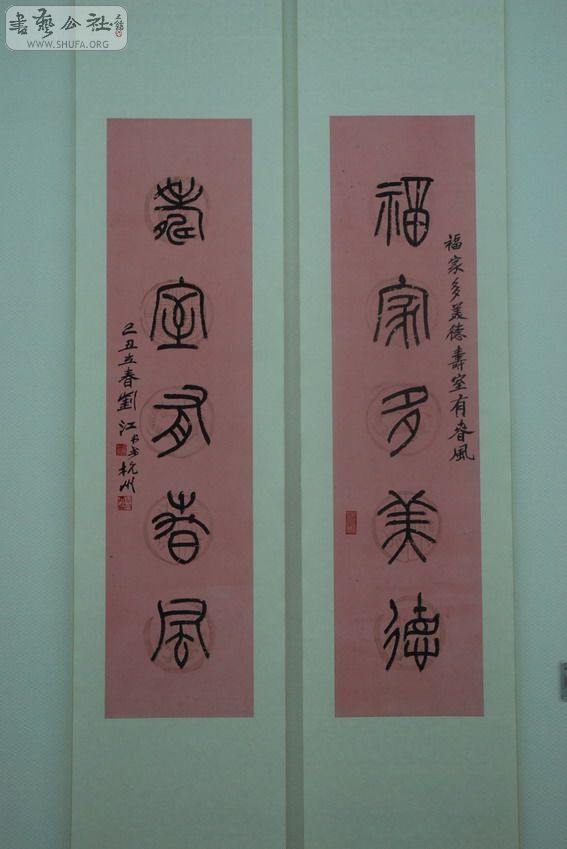 書藝公社
WWW.SHUFA.ORG
福家多美德壽室有春風
福家多美德
壽室有春風
己丑立春劉江书於杭州